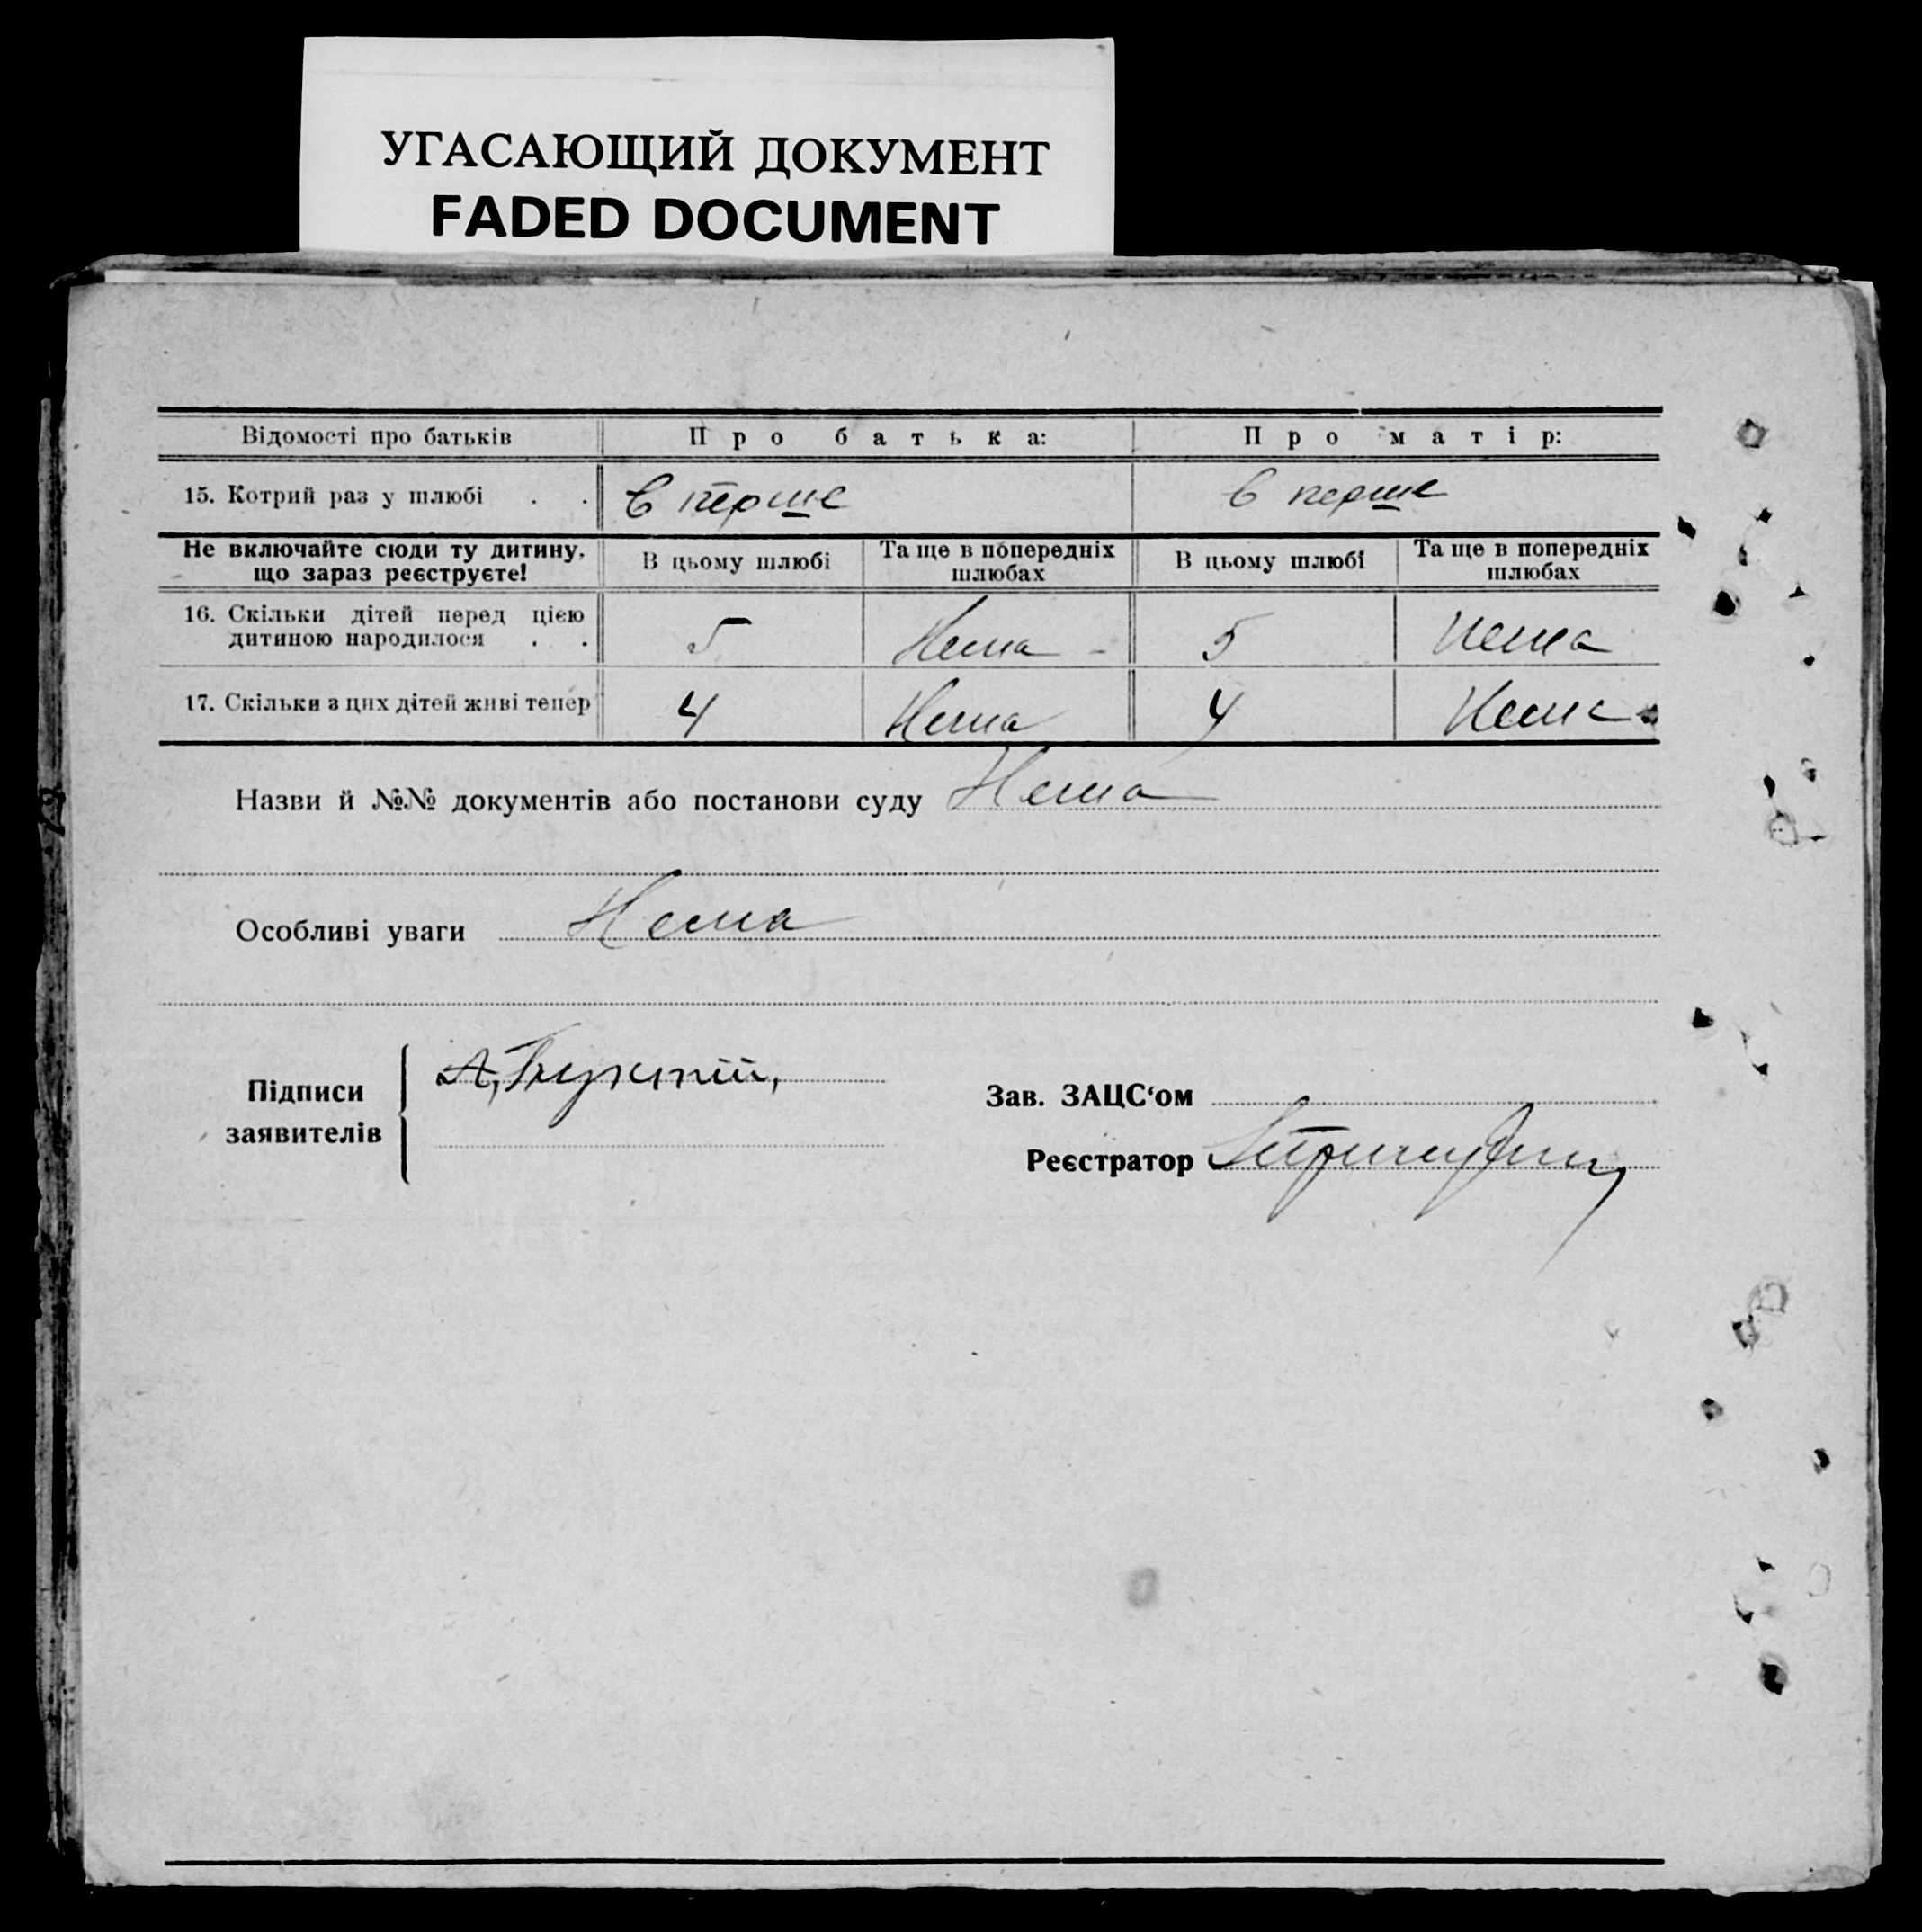 УГАСАЮЩИЙ ДОКУМЕНТ
FADED DOCUMENT
Відомості про батьків Про батька: Про матір:
15. Котрий раз у шлюбі . . В перше в перше
Не включайте сюди ту дитину, що зараз реєструєте! В цьому шлюбі Та ще в попередніх шлюбах В цьому шлюбі Та ще в попередніх шлюбах
16. Скільки дітей перед цією
дитиною народилося . . 5 Нема 5 Нема
17. Скільки з цих дітей живі тепер 4 Нема 4 Нема
Назви й №№ документів або постанови суду Нема
Особливі уваги Нема
Підписи
заявителів
Зав. ЗАЦС‘ом
Реєстратор